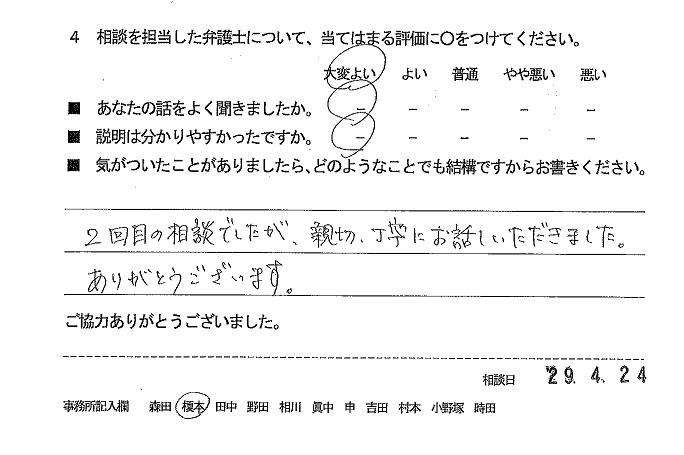 4 相談を担当した弁護士について、当てはまる評価に○をつけてください。
大変よい よい 普通 やや悪い 悪い
■ あなたの話をよく聞きましたか。 － － － － －
■ 説明は分かりやすかったですか。 － － － － －
■ 気がついたことがありましたら、どのようなことでも結構ですからお書きください。
2回目の相談でしたが、親切、丁寧にお話しいただきました。
ありがとうございます。
ご協力ありがとうございました。
相談日 '29. 4. 24
事務所記入欄 森田 榎本 田中 野田 相川 眞中 申 吉田 村本 小野塚 時田